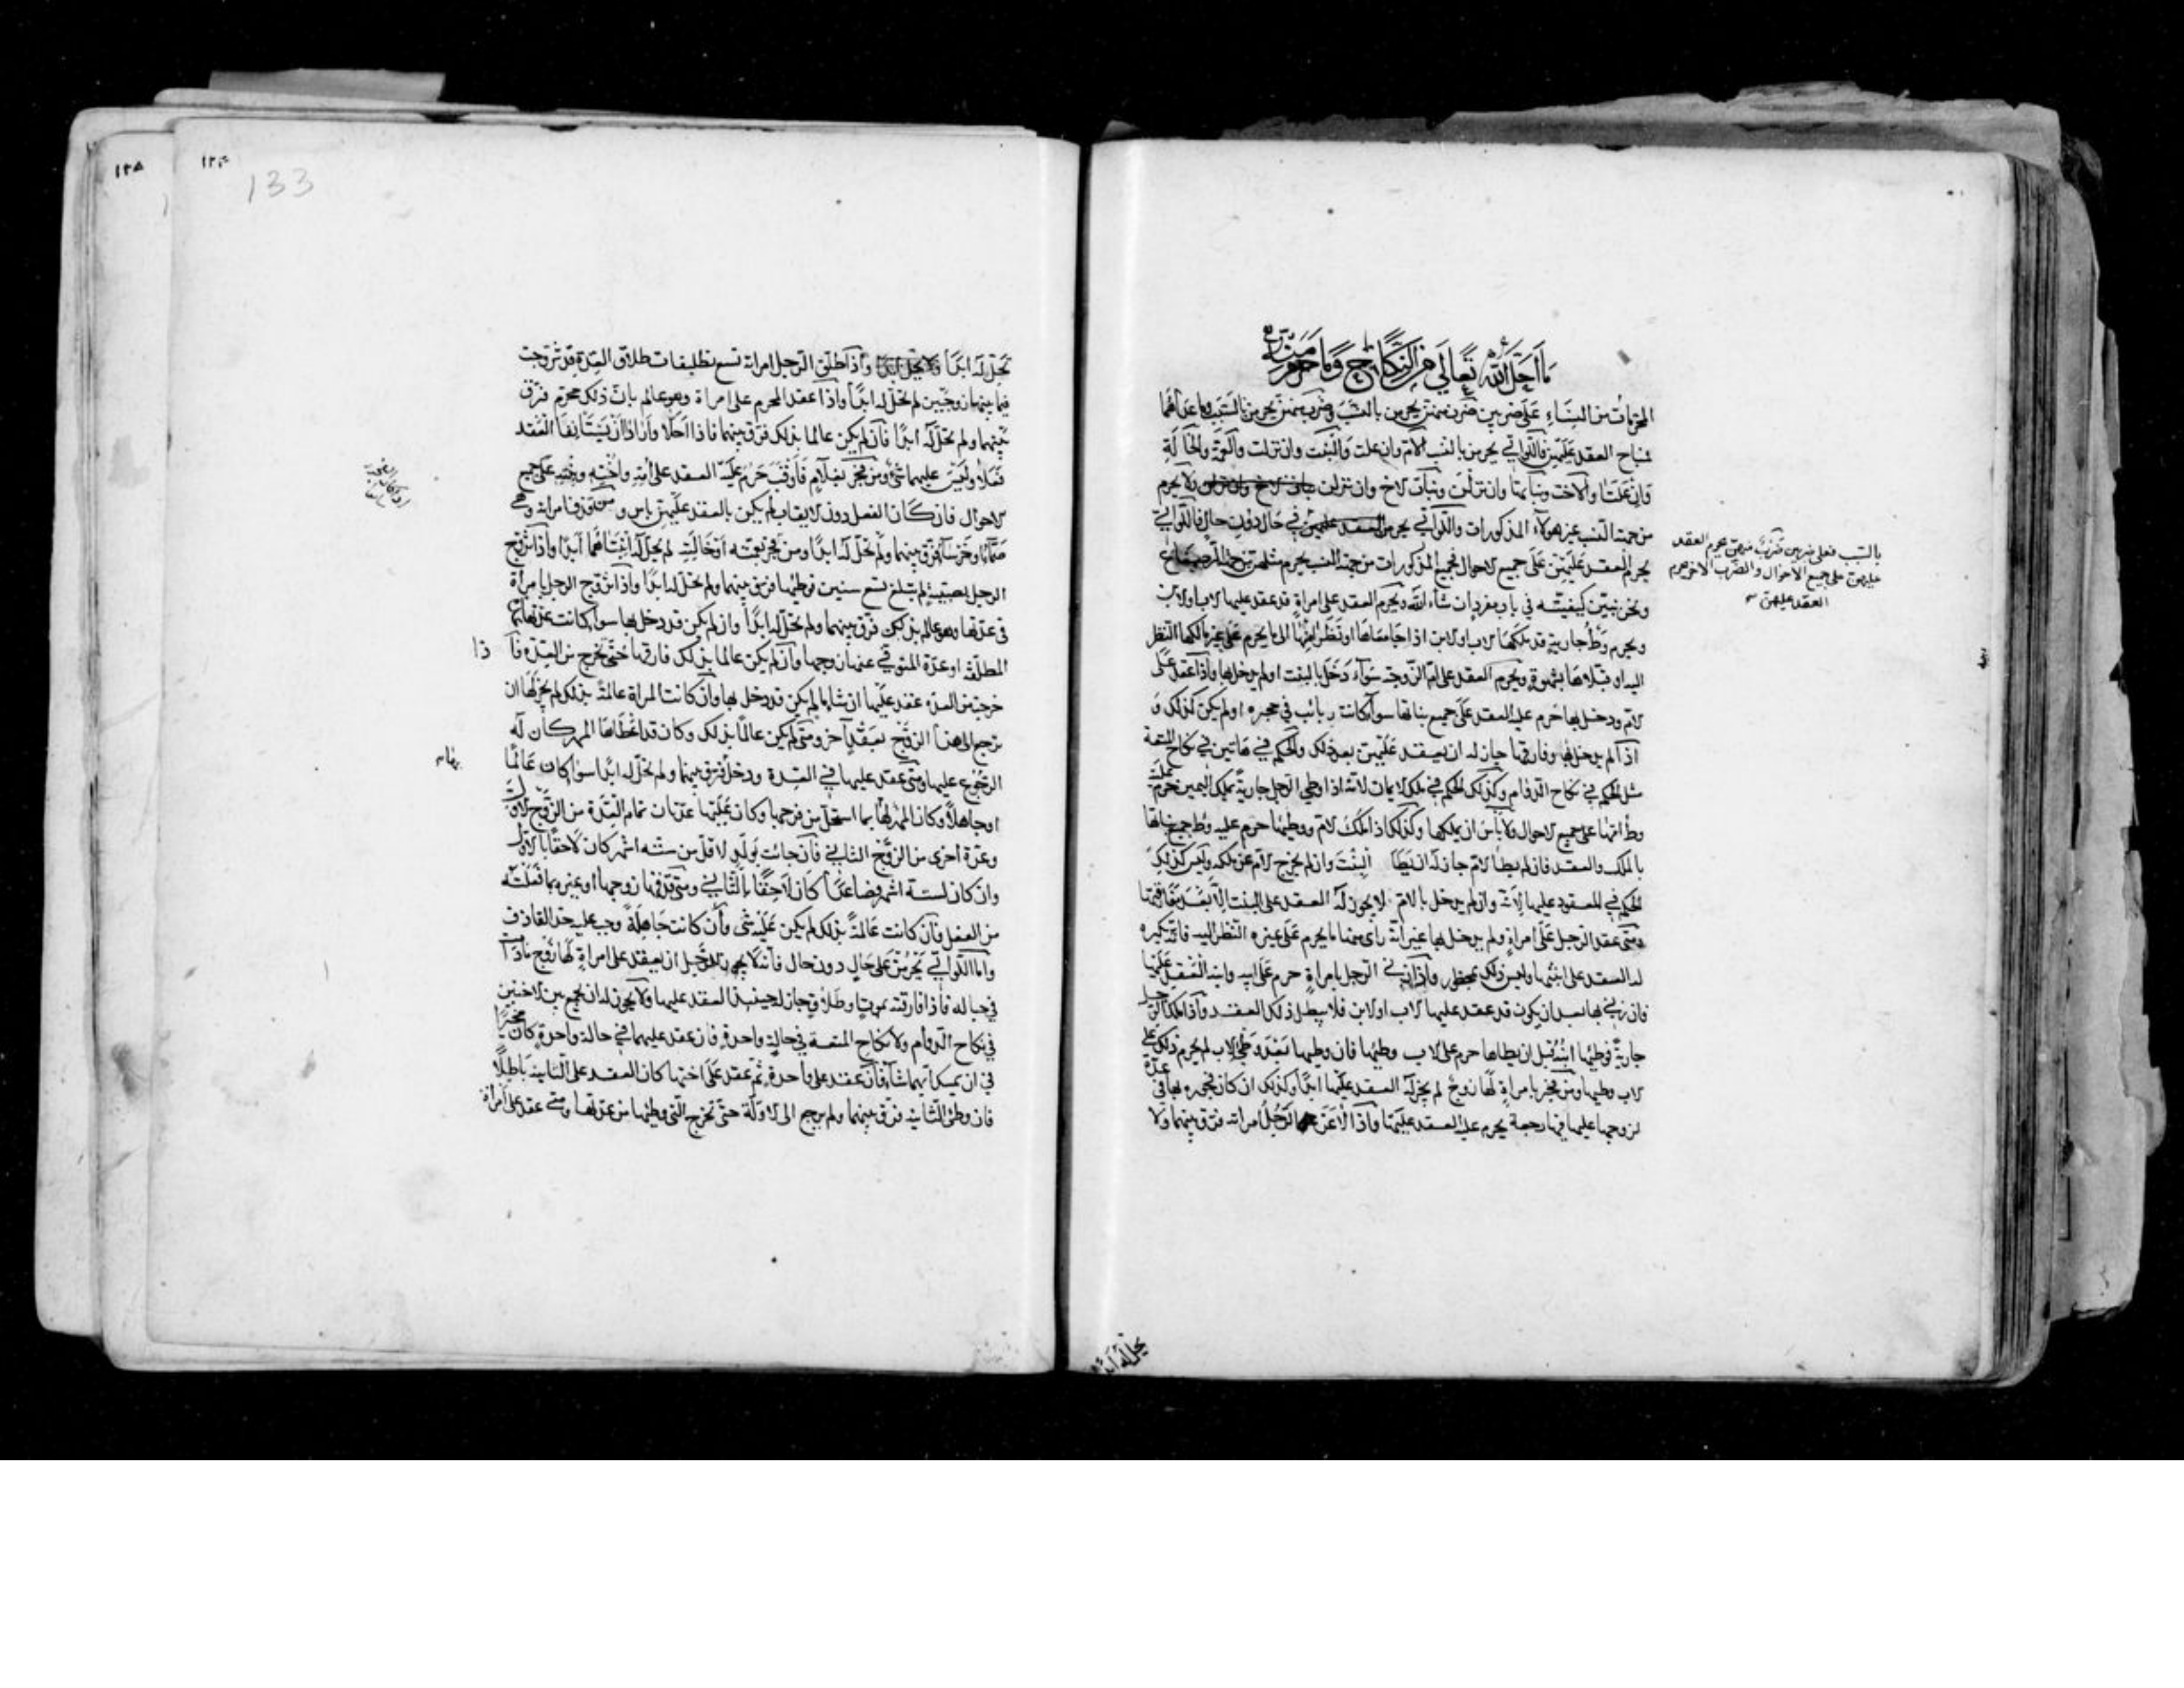 ما احل الله تعالى من النكاح وما حرم منه
المحرمات من النساء على ضربين ضرب منهن يحرمن بالنسب وضرب منهن يحرمن بالسبب وما عداهما
مباح العقد عليهن فاللواتي يحرمن بالنسب الام وان علت والبنت وان نزلت والعمة والخالة
وان علتا والاخت وبناتها وان نزلن وبنات الاخ وان نزلن بنات الاخ وان نزلن ولا يحرم
من جهة النسب غير هولاء المذكورات واللواتي يحرمن العقد عليهن في حال دون حال فاللواتي
يحرم العقد عليهن على جميع الاحوال فجميع المذكورات من جهة النسب يحرم مثلهن من جهة الرضاع
ونحن نبين كيفيته في باب مفرد ان شاء الله ويحرم العقد على امراة قد عقد عليها الاب او الابن
ويحرم وطء جارية قد ملكها الاب او الابن اذا جامعاها او نظرا منها الى ما يحرم على غير مالكها النظر
اليه او قبلاها بشهوة ويحرم العقد على ام الزوجة سواء دخل بالبنت او لم يدخل بها واذا عقد على
الام ودخل بها حرم عليه العقد على جميع بناتها سواء كانت ربائب في حجره او لم يكن كذلك و
اذا لم يدخل بها وفارقها جاز له ان يعقد عليهن بعد ذلك والحكم في هاتين في نكاح المتعة
مثل الحكم في نكاح الدوام وكذلك الحكم في ملك الايمان لانه اذا وطي الرجل جارية بملك اليمين حرم عليه
وطء امها على جميع الاحوال ولا باس ان يملكها وكذلك اذا ملك الام ووطيها حرم عليه وطء جميع بناتها
بالملك والعقد فان لم يطا الام جاز له ان يطا البنت وان لم يخرج الام عن ملكه وليس كذلك
الحكم في المعقود عليها لانه وان لم يدخل بالام لا يجوز له العقد على البنت الا بعد مفارقتها
ومتى عقد الرجل على امراة ولم يدخل بها غير انه راى منها ما يحرم على غيره النظر اليه فانه يكره
له العقد على ابنتها وليس ذلك بمحظور واذا زنى الرجل بامراة حرم على ابيه وابنه العقد عليها
فان زنى بها بعد ان يكون قد عقد عليها الاب او الابن فلا يبطل ذلك العقد واذا ملك الرجل
جارية فوطيها ابنه قبل ان يطاها حرم على الاب وطيها فان وطيها بعد وطي الاب لم يحرم ذلك على
الاب وطيها ومن فجر بامراة لها زوج لم يجز له العقد عليها ابدا وكذلك ان كان فجوره بها في عدة
لزوجها عليها فيها رجعة يحرم عليه العقد عليها واذا لاعن الرجل امراته فرق بينهما ولا
بالسبب فعلى ضربين ضرب منهن يحرم العقد
عليهن على جميع الاحوال والضرب الاخر يحرم
العقد عليهن
تحل له ابدا
١٣٥
١٣٤
133
تحل له ابدا ولا تحل له ابدا واذا طلق الرجل امراته تسع تطليقات طلاق العدة قد تزوجت
فيما بينها زوجين لم تحل له ابدا واذا عقد المحرم على امراة وهو عالم بان ذلك محرم فرق
بينهما ولم تحل له ابدا فان لم يكن عالما بذلك فرق بينهما فاذا احلا وارادا ان يستانفا العقد
فعلا وليس عليهما شيء ومن فجر بغلام فاوقب حرم عليه العقد على امه واخته وبنته على جميع
الاحوال فان كان الفعل دون الايقاب لم يكن بالعقد عليهن باس ومن قذف امراته وهي
صماء او خرساء فرق بينهما ولم تحل له ابدا ومن فجر بعمته او خالته لم يحل له ابنتاهما ابدا واذا تزوج
الرجل بصبية لم تبلغ تسع سنين فوطيها فرق بينهما ولم تحل له ابدا واذا تزوج الرجل بامراة
في عدتها وهو عالم بذلك فرق بينهما ولم تحل له ابدا وان لم يكن قد دخل بها سواء كانت عدتها عدة
المطلقة او عدة المتوفي عنها زوجها وان لم يكن عالما بذلك فارقها حتى تخرج من العدة فا ذا
خرجت من العدة عقد عليها ان شاء ما لم يكن قد دخل بها وان كانت المراة عالمة بذلك لم يجز لها ان
ترجع الى هذا الزوج بعقد آخر ومتى لم يكن عالما بذلك وكان قد اعطاها المهر كان له
الرجوع عليها ومتى عقد عليها في العدة ودخل فرق بينهما ولم تحل له ابدا سواء كان عالما
او جاهلا وكان المهر لها بما استحل من فرجها وكان عليها عدتان تمام العدة من الزوج الاول
وعدة اخرى من الزوج الثاني فان جائت بولد لاقل من ستة اشهر كان لاحقا بالاول
وان كان لستة اشهر فصاعدا كان لاحقا بالثاني ومتى قذفها زوجها او غيره بما فعلته
من الفعل فان كانت عالمة بذلك لم يكن عليه شي وان كانت جاهلة وجب عليه حد القاذف
واما اللواتي يحرمن على حال دون حال فانه لا يجوز للرجل ان يعقد على امراة لها زوج ما دامت
في حباله فاذا فارقته بموت او طلاق جاز له حينئذ العقد عليها ولا يجوز له ان يجمع بين الاختين
في نكاح الدوام ولا نكاح المتعة في حالة واحدة فان عقد عليهما في حالة واحدة كان مخيرا
في ان يمسك ايهما شاء فان عقد على واحدة ثم عقد على اختها كان العقد على الثانية باطلا
فان وطئ الثانية فرق بينهما ولم يرجع الى الاولة حتى تخرج التي وطيها من عدتها ومتى عقد على امراة